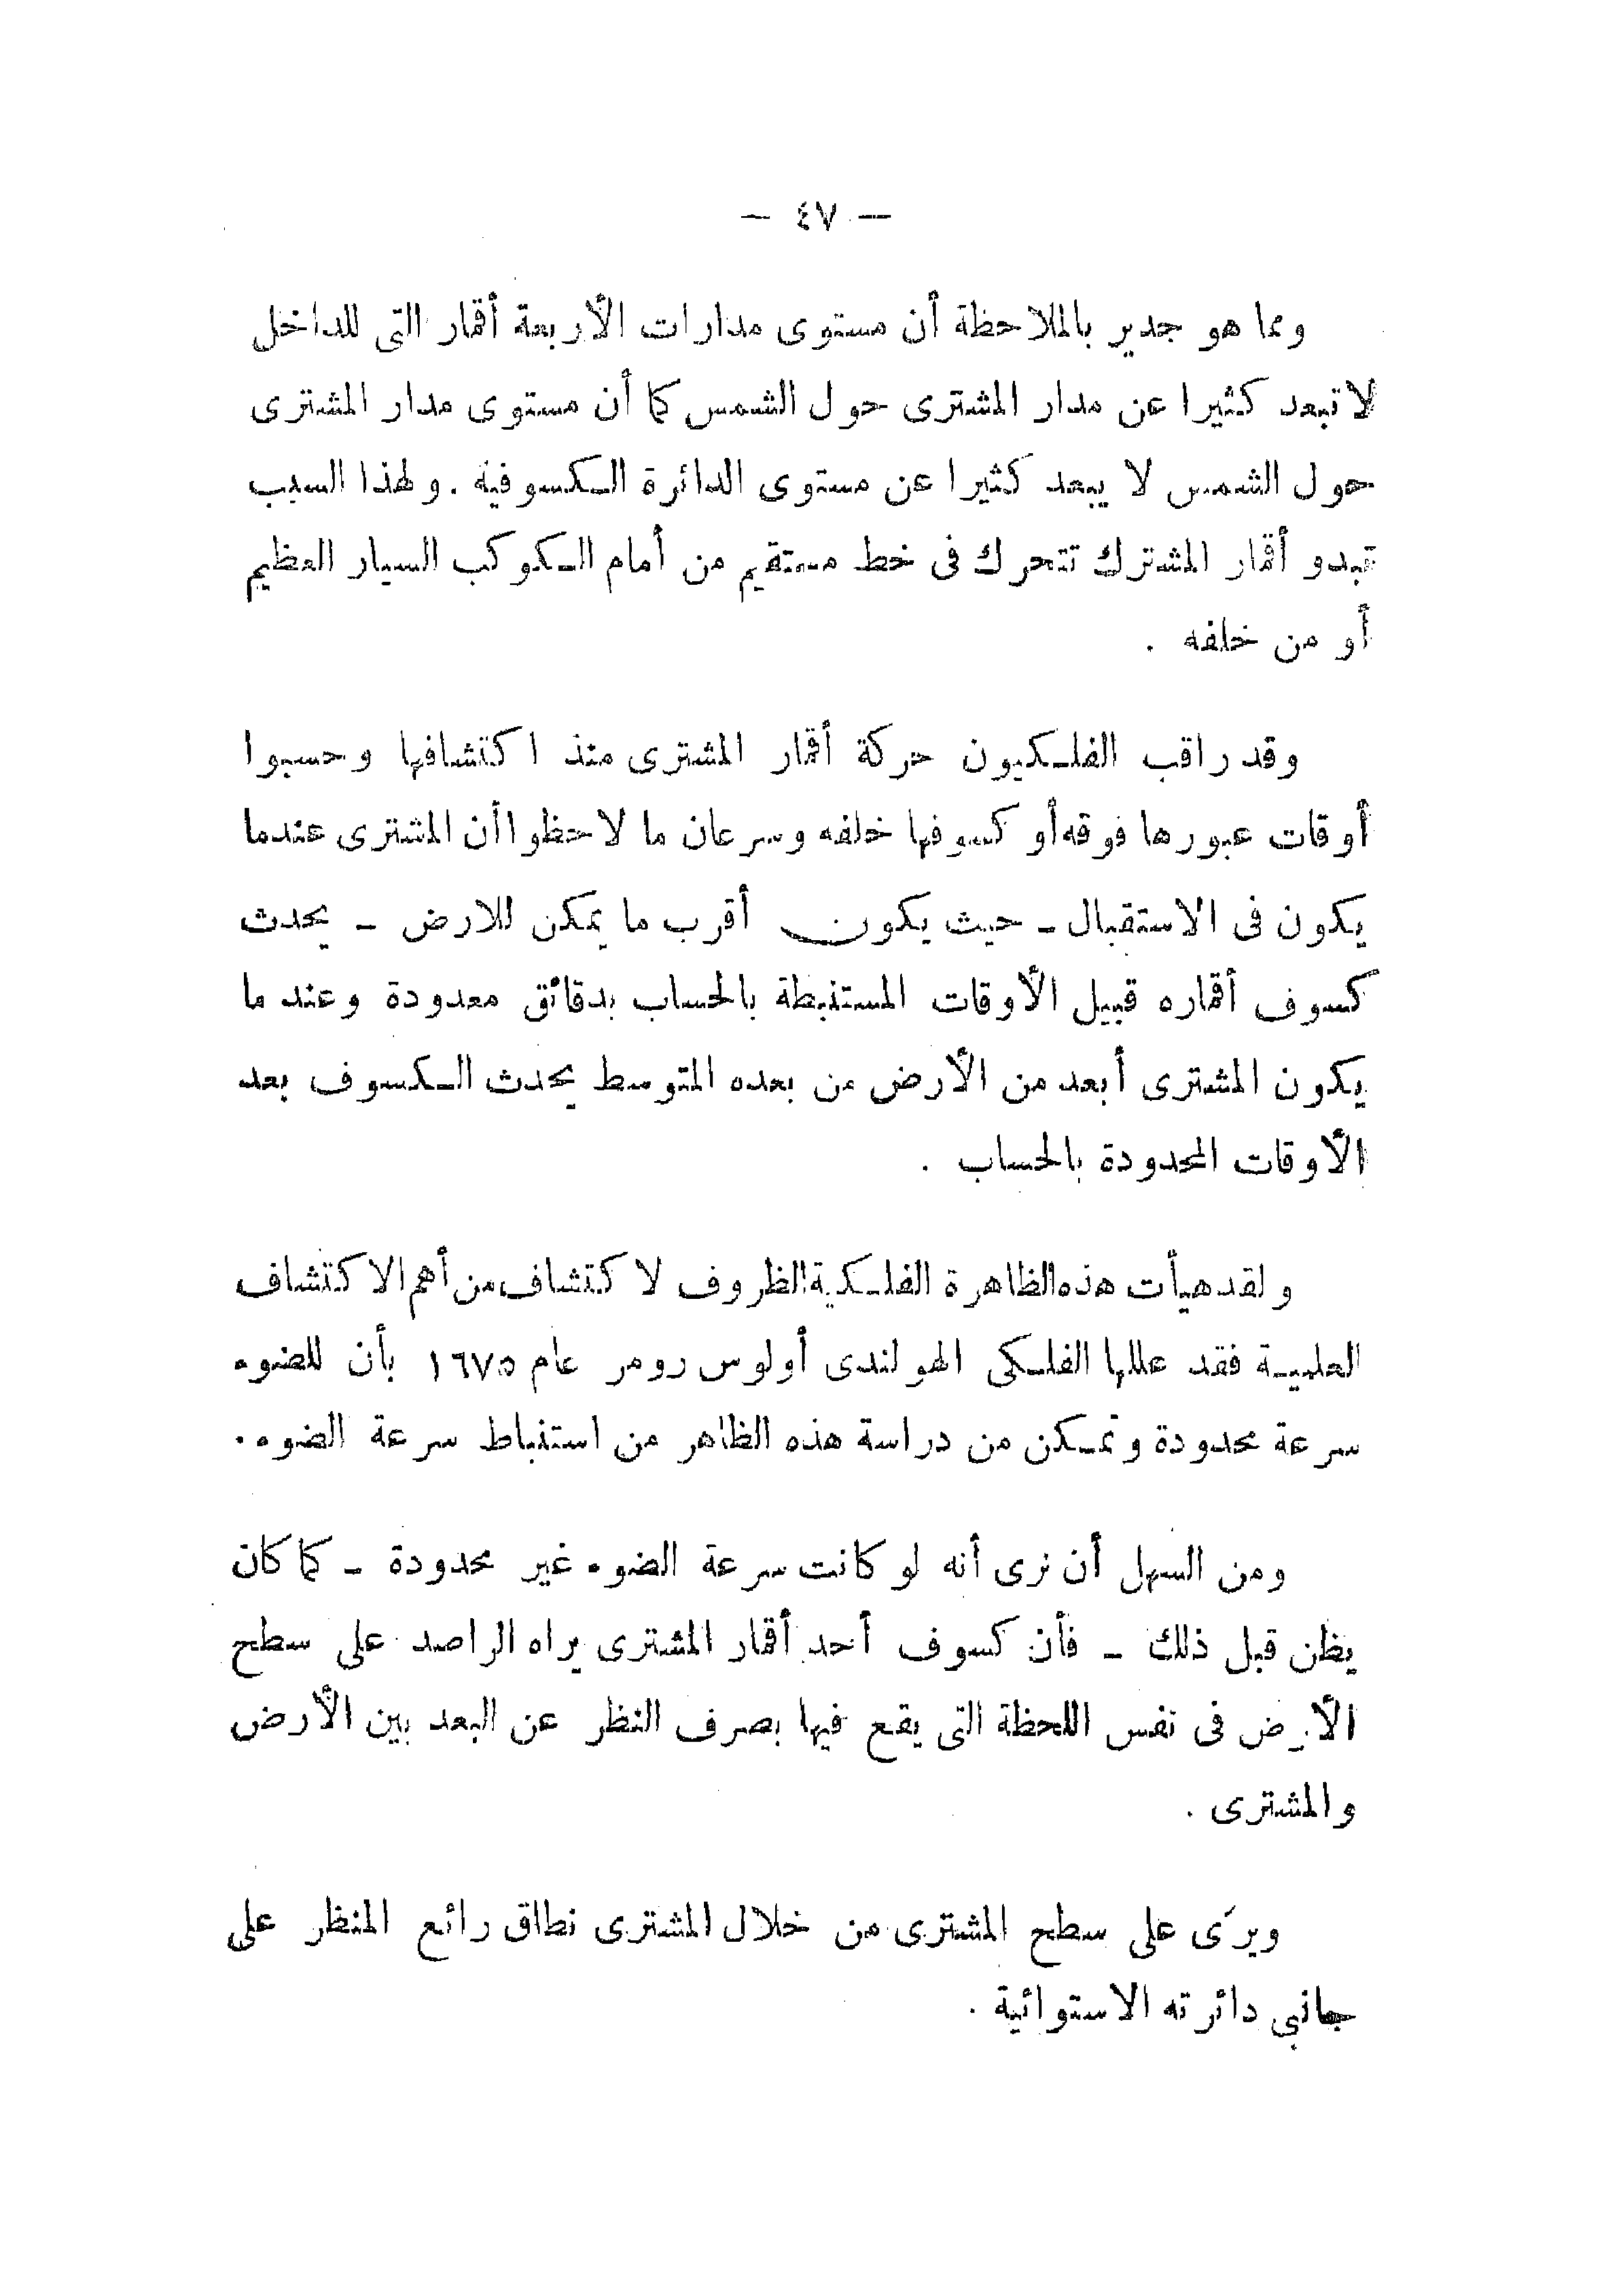 — ٤٧ —
ومما هو جدير بالملاحظة أن مستوى مدارات الأربعة أقمار التى للداخل
لا تبعد كثيرا عن مدار المشترى حول الشمس كما أن مستوى مدار المشترى
حول الشمس لا يبعد كثيرا عن مستوى الدائرة الكسوفية . ولهذا السبب
تبدو أقمار المشترك تتحرك فى خط مستقيم من أمام الكوكب السيار العظيم
أو من خلفه .
وقد راقب الفلكيون حركة أقمار المشترى منذ اكتشافها وحسبوا
أوقات عبورها فوقه أو كسوفها خلفه وسرعان ما لاحظوا أن المشترى عندما
يكون فى الاستقبال – حيث يكون أقرب ما يمكن للارض – يحدث
كسوف أقماره قبيل الأوقات المستنبطة بالحساب بدقائق معدودة وعند ما
يكون المشترى أبعد من الأرض من بعده المتوسط يحدث الكسوف بعد
الأوقات المحدودة بالحساب .
ولقد هيأت هذه الظاهرة الفلكية الظروف لاكتشاف من أهم الاكتشاف
العلمية فقد عللها الفلكى الهولندى أولوس رومر عام ١٦٧٥ بأن للضوء
سرعة محدودة وتمكن من دراسة هذه الظاهر من استنباط سرعة الضوء .
ومن السهل أن نرى أنه لو كانت سرعة الضوء غير محدودة – كما كان
يظن قبل ذلك – فأن كسوف أحد أقمار المشترى يراه الراصد على سطح
الأرض فى نفس اللحظة التى يقع فيها بصرف النظر عن البعد بين الأرض
والمشترى .
ويرَى على سطح المشترى من خلال المشترى نطاق رائع المنظر على
جانبي دائرته الاستوائية .